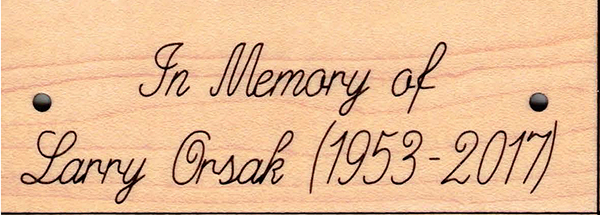 In Memory of
Larry Orsak (1953-2017)